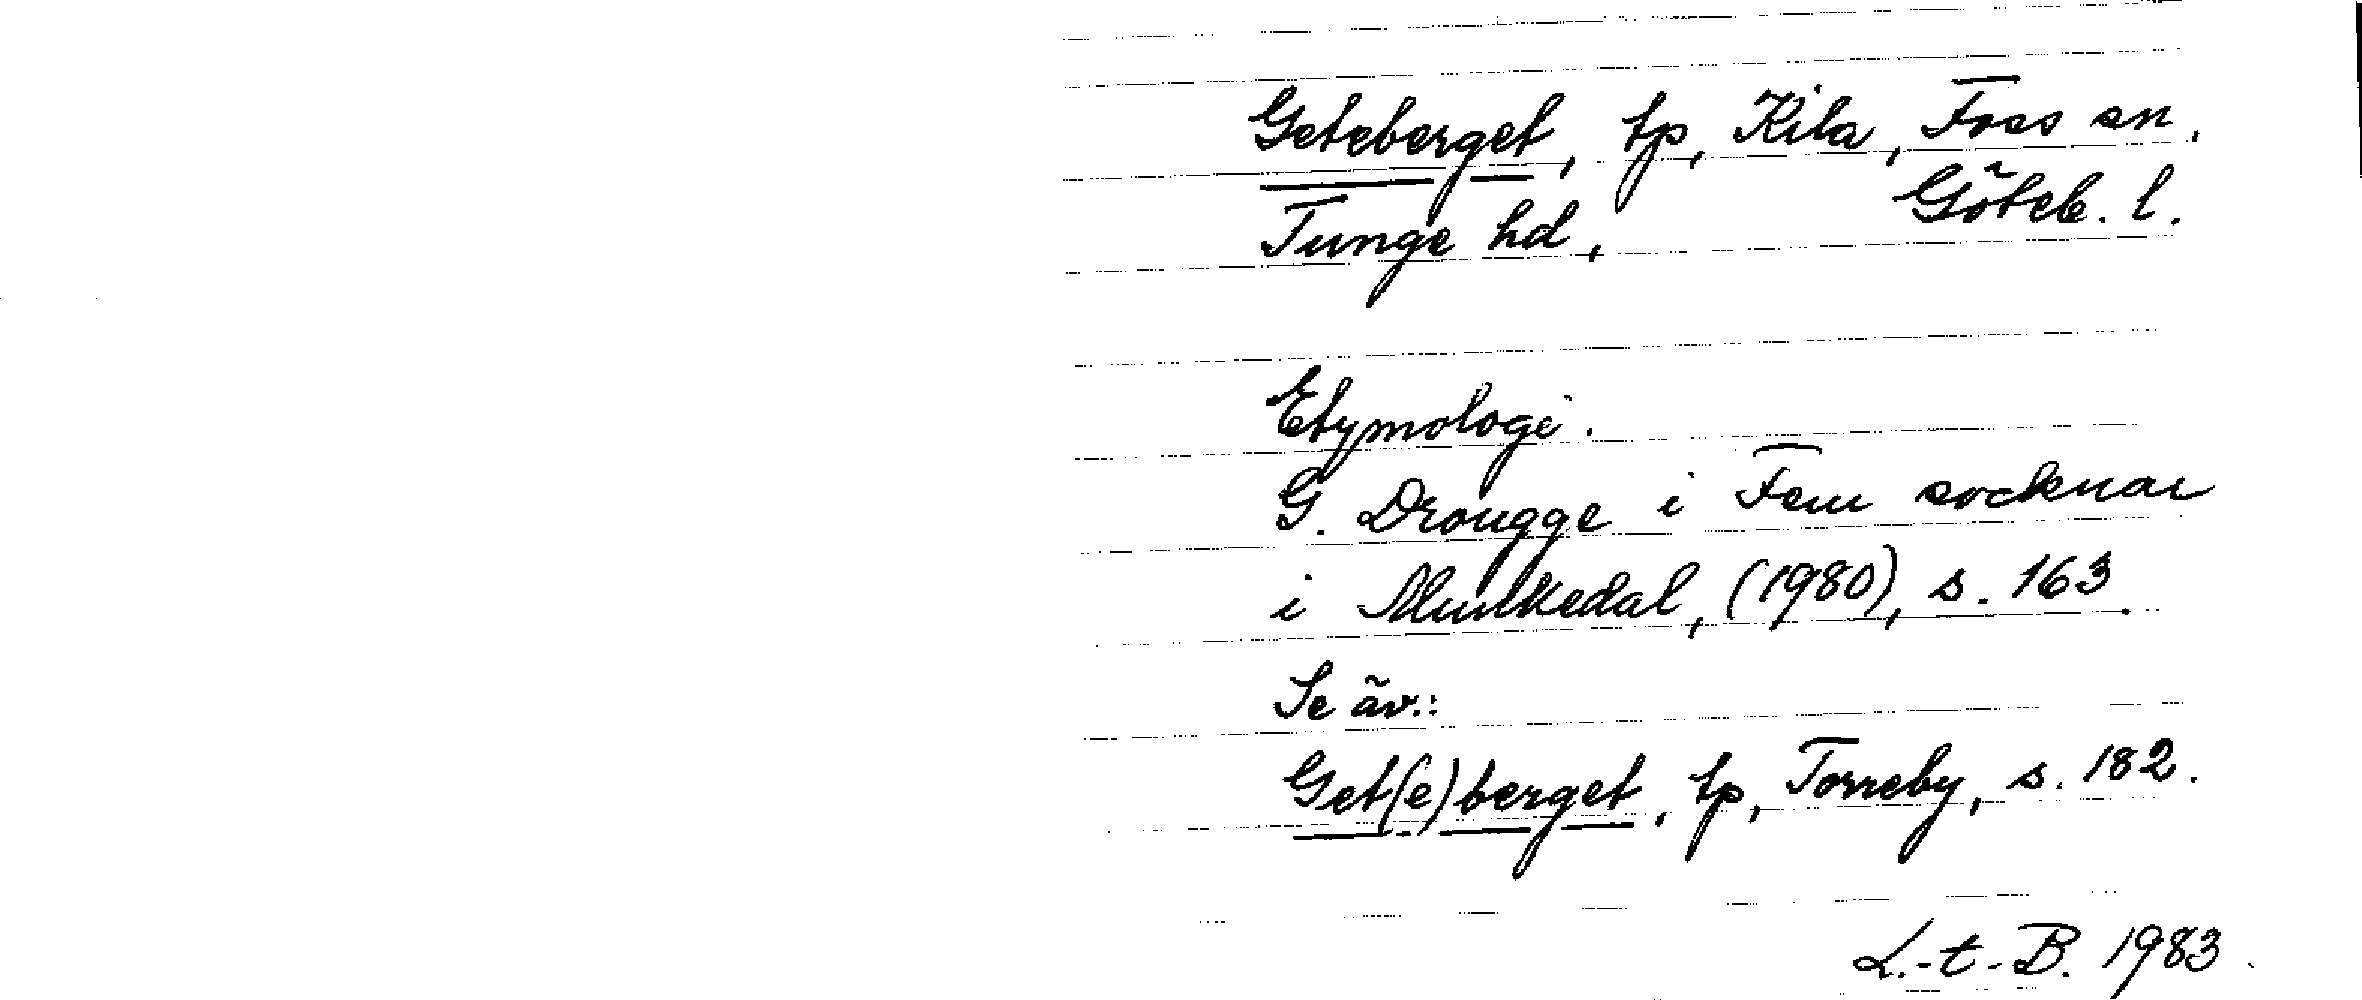 Geteberget, tp, Kila, Foss sn,
Tunge hd, Göteb. l.
Etymologi.
G. Drougge i Fem socknar
i Munkedal, (1980), s. 163.
Se äv.:
Get(e)berget, tp, Torreby, s. 182.
L.-t.-B. 1983.